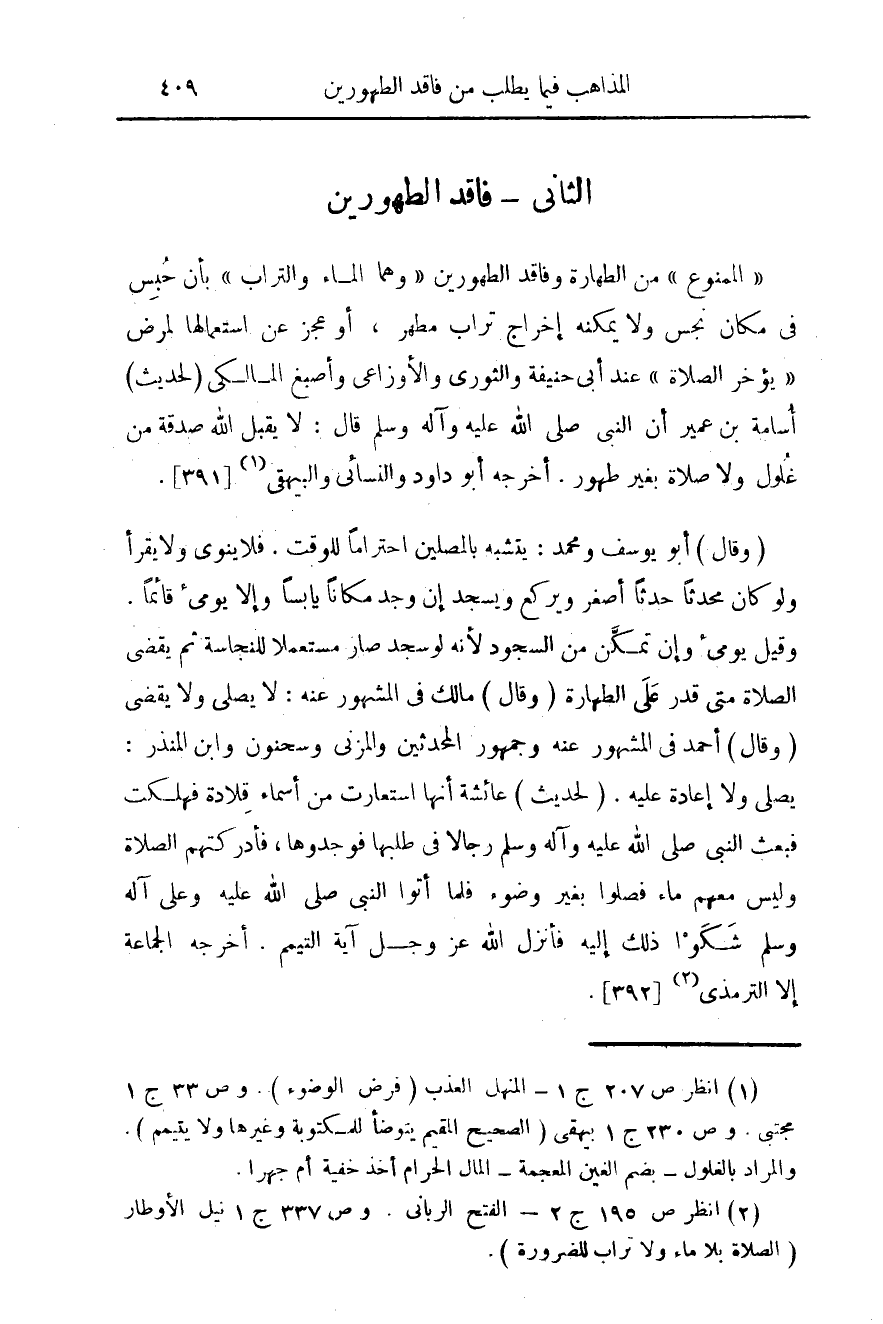 المذاهب فيما يطلب من فاقد الطهورين ٤٠٩
الثانى – فاقد الطهورين
« الممنوع » من الطهارة وفاقد الطهورين « وهما المـاء والتراب » بأن حُبِس
فى مكان نجس ولا يمكنه إخراج تراب مطهر ، أو عجز عن استعمالها لمرض
« يؤخر الصلاة » عند أبى حنيفة والثورى والأوزاعى وأصبغ المـالـكى (لحديث)
أُسامة بن عمير أن النبى صلى الله عليه وآله وسلم قال : لا يقبل الله صدقة من
غُلول ولا صلاة بغير طهور . أخرجه أبو داود والنسائى والبيهقى(١) [٣٩١] .
( وقال ) أبو يوسف ومحمد : يتشبه بالمصلين احتراماً للوقت . فلاينوى ولايقرأ
ولو كان محدثاً حدثاً أصغر ويركع ويسجد إن وجد مكاناً يابساً وإلا يومىء قائماً .
وقيل يومىء وإن تمـكَّن من السجود لأنه لوسجد صار مستعملا للنجاسة ثم يقضى
الصلاة متى قدر عَلَى الطهارة ( وقال ) مالك فى المشهور عنه : لا يصلى ولا يقضى
( وقال ) أحمد فى المشهور عنه وجمهور المحدثين والمزنى وسحنون وابن المنذر :
يصلى ولا إعادة عليه . ( لحديث ) عائشة أنها استعارت من أسماء قِلادة فهلـكت
فبعث النبى صلى الله عليه وآله وسلم رجالا فى طلبها فوجدوها ، فأدركتهم الصلاة
وليس معهم ماء فصلوا بغير وضوء فلما أتوا النبى صلى الله عليه وعلى آله
وسلم شَـكَوْا ذلك إليه فأنزل الله عز وجـل آية التيمم . أخرجه الجماعة
إلا الترمذى(٢) [٣٩٢] .
(١) انظر ص ٢٠٧ ج ١ – المنهل العذب ( فرض الوضوء ) . و ص ٣٣ ج ١
مجتبى . و ص ٢٣٠ ج ١ بيهقى ( الصحيح المقيم يتوضأ للمـكتوبة وغيرها ولا يتيمم ) .
والمراد بالغلول – بضم الغين المعجمة – المال الحرام أخذ خفية أم جهرا .
(٢) انظر ص ١٩٥ ج ٢ – الفتح الربانى . و ص ٣٣٧ ج ١ نيل الأوطار
( الصلاة بلا ماء ولا تراب للضرورة ) .